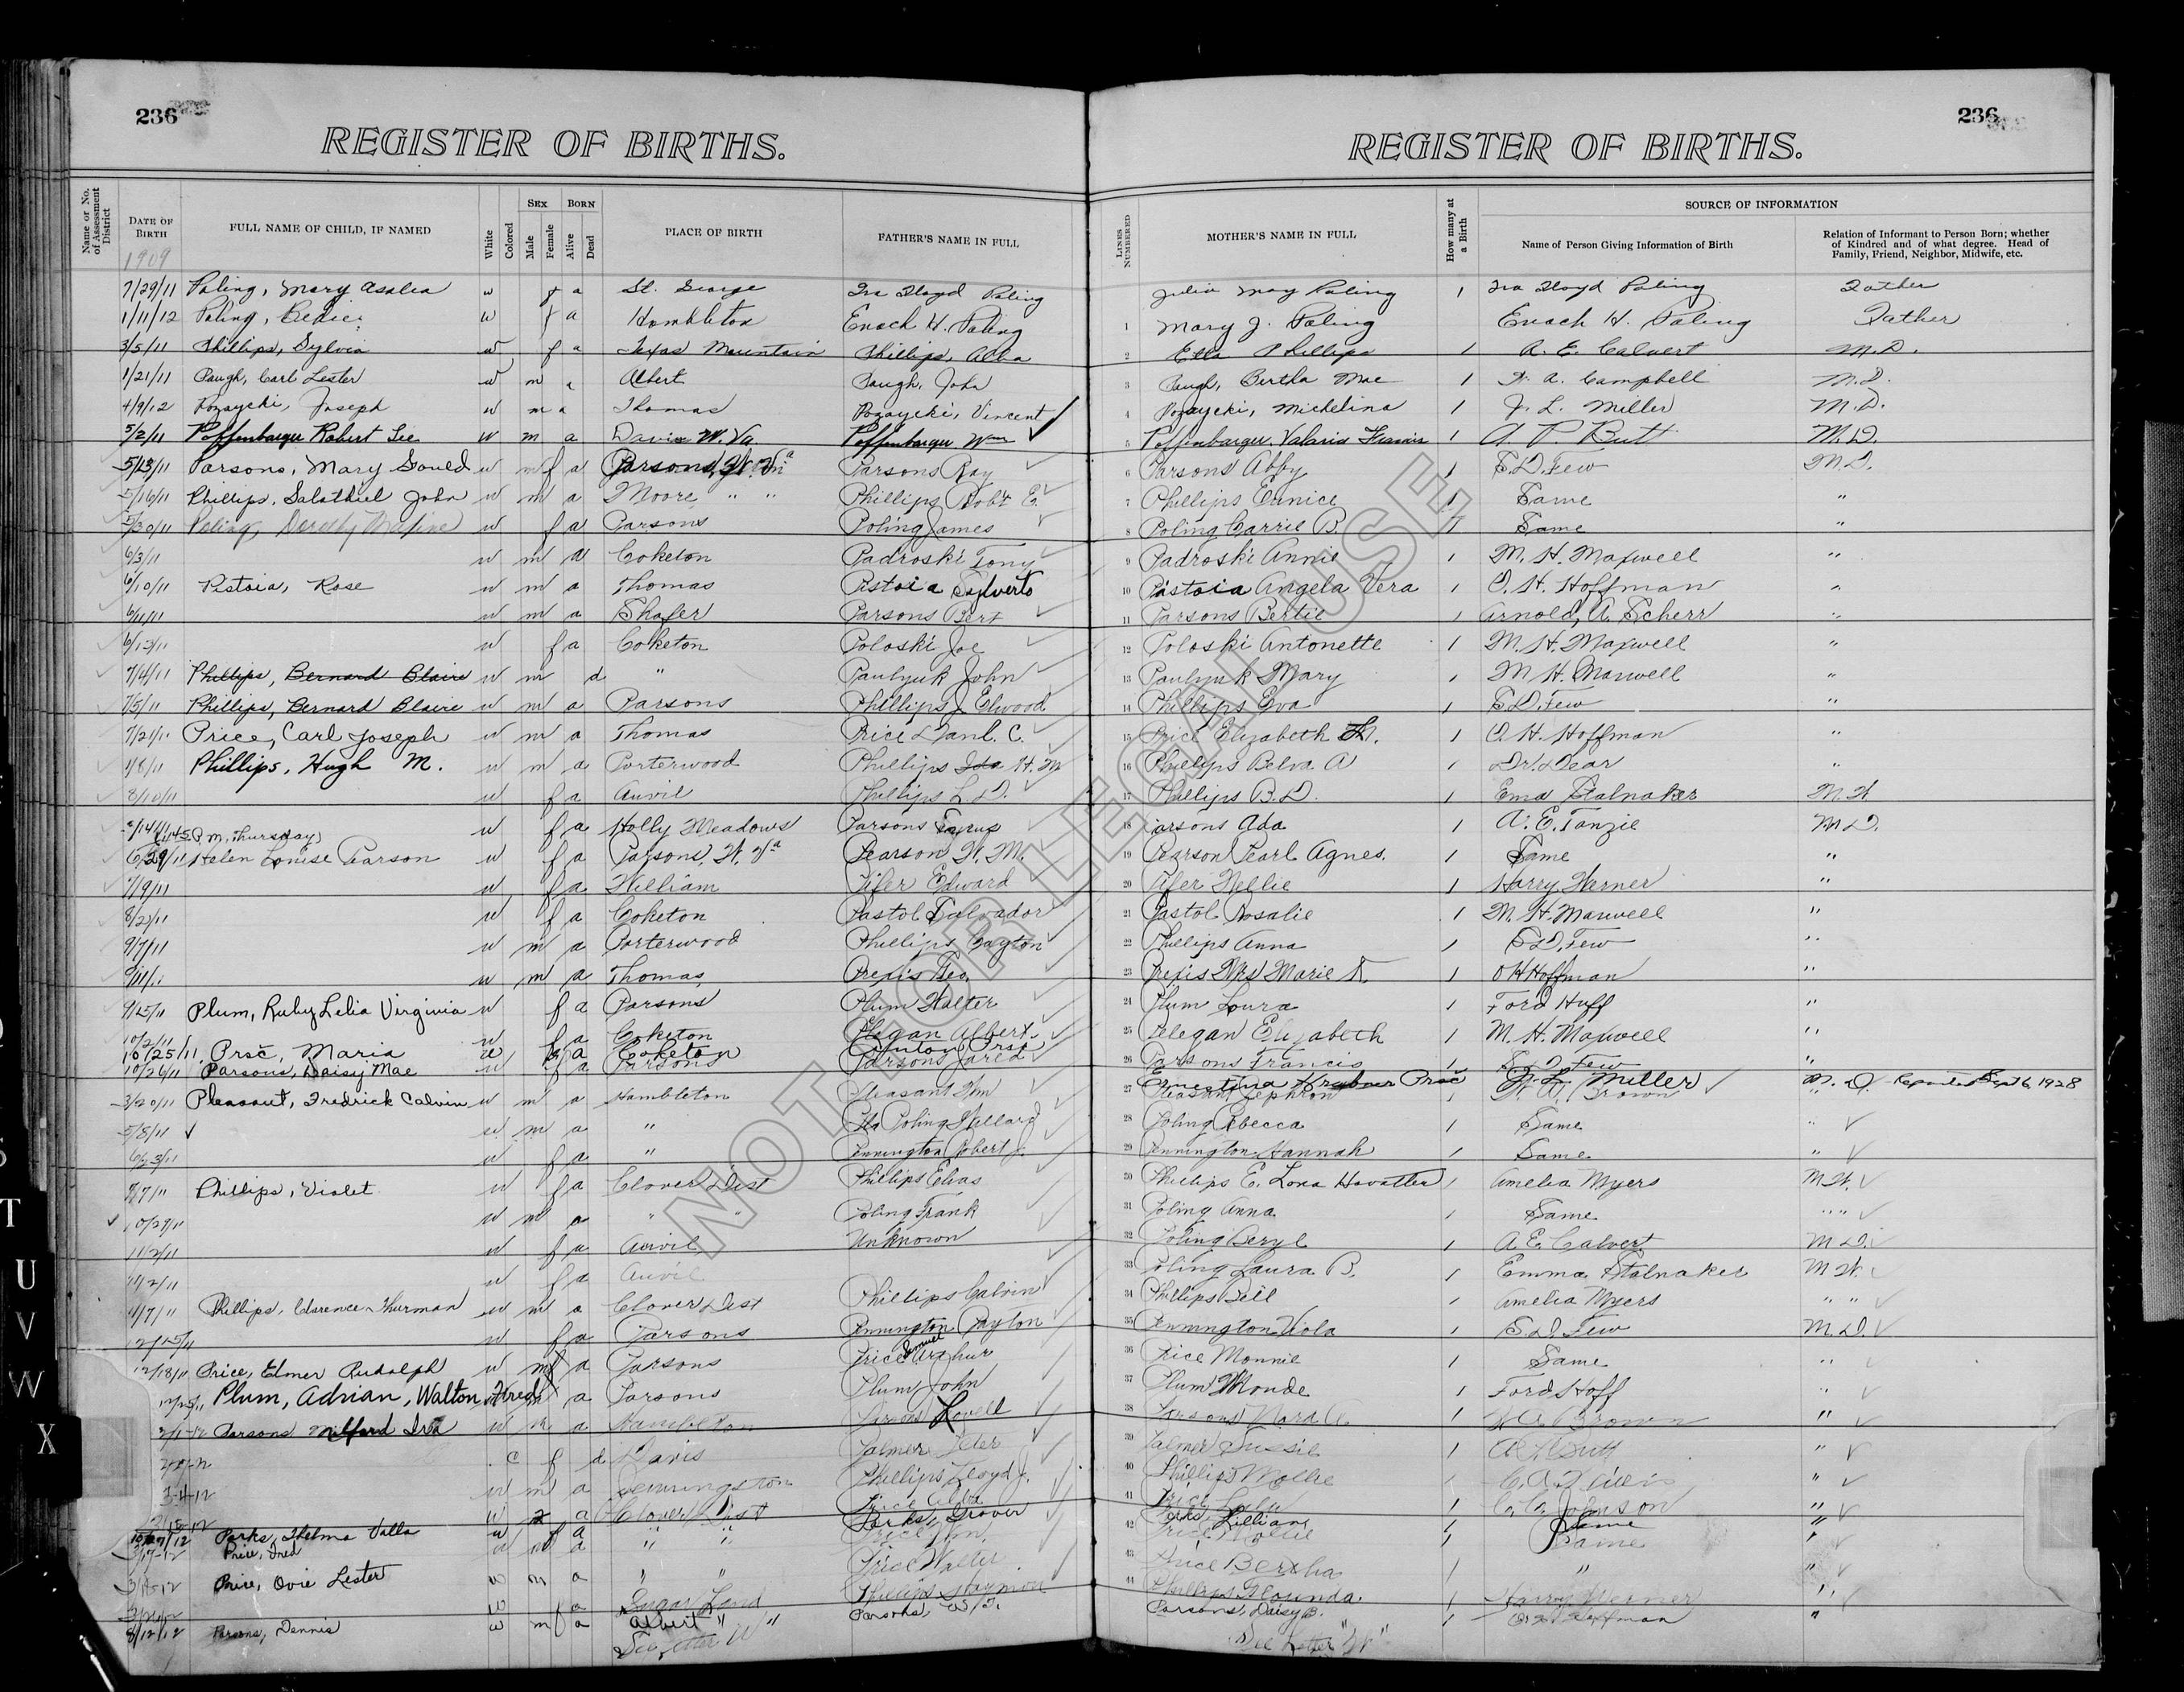 236
REGISTER OF BIRTHS.
236
REGISTER OF BIRTHS.
Name or No. of Assessment District
DATE OF BIRTH
1909
FULL NAME OF CHILD, IF NAMED
White
Colored
SEX
Male
Female
BORN
Alive
Dead
PLACE OF BIRTH
FATHER'S NAME IN FULL
LINES NUMBERED
MOTHER'S NAME IN FULL
How many at a Birth
SOURCE OF INFORMATION
Name of Person Giving Information of Birth
Relation of Informant to Person Born; whether of Kindred and of what degree. Head of Family, Friend, Neighbor, Midwife, etc.
7/29/11 Poling, Mary Asalea w f a St. George Ira Lloyd Poling Julia May Poling 1 Ira Lloyd Poling Father
1/11/12 Poling, w f a Hambleton Enoch H. Poling 1 Mary J. Poling Enoch H. Poling Father
3/5/11 Phillips, Sylvia w f a Texas Mountain Phillips, Alba 2 Etta Phillips 1 A. E. Calvert M.D.
1/21/11 Paugh, Carl Lester w m a Albert Paugh, John 3 Paugh, Bertha Mae 1 A. Campbell M.D.
4/9/12 Pozaycki, Joseph w m a Thomas Pozaycki, Vincent 4 Pozaycki, Michelina 1 J. L. Miller M.D.
5/2/11 Poffenbarger Robert Lee w m a Davis W. Va. Poffenbarger Wm 5 Poffenbarger Valaria 1 A. P. Butt M.D.
5/15/11 Parsons, Mary Gould w f a Parsons, W. Va Parsons Ray 6 Parsons Abby 1 S.D. Few M.D.
5/16/11 Phillips, Salathiel John w m a Moore " " Phillips Robt E. 7 Phillips Eunice 1 Same "
5/20/11 Poling, Dorothy Maxine w f a Parsons Poling James 8 Poling Carrie B. 1 Same "
6/3/11 w m a Coketon Padroski Tony 9 Padroski Annie 1 M. H. Maxwell "
6/10/11 Pistoia, Rose w m a Thomas Pistoia Sylverto 10 Pistoia Angela Vera 1 O. H. Hoffman "
6/11/11 w m a Shafer Parsons Bert 11 Parsons Bertie 1 Arnold, A. Scherr "
6/13/11 w f a Coketon Poloski Joe 12 Poloski Antonette 1 M. H. Maxwell "
7/4/11 Phillips, Bernard Blaire w m d " Paulyuk John 13 Paulyuk Mary 1 M. H. Maxwell "
7/5/11 Phillips, Bernard Blaire w m a Parsons Phillips J Elwood 14 Phillips Eva 1 S.D. Few "
7/21/11 Price, Carl Joseph w m a Thomas Price Danl. C. 15 Price Elizabeth M. 1 O. H. Hoffman "
1/8/11 Phillips, Hugh M. w m a Porterwood Phillips H. M 16 Phillips Belva A 1 Dr. Dear "
8/10/11 w f a Auvil Phillips L. D. 17 Phillips B.D. 1 Ema Stalnaker M. W
w f a Holly Meadows Parsons Cyrus 18 Parsons Ada 1 A. E. M.D.
11:45 P.m. Thursday
6/29/11 Helen Louise Pearson w f a Parsons, W. Va Pearson W. M. 19 Pearson Pearl Agnes. 1 Same "
7/19/11 w f a William Pifer Edward 20 Pifer Nellie 1 Harry Werner "
8/23/11 w f a Coketon Pastol Salvador 21 Pastol Rosalie 1 M. H. Maxwell "
9/7/11 w m a Porterwood Phillips Cayton 22 Phillips Anna 1 S.D. Few "
9/11/11 w m a Thomas Prexis Geo. 23 Prexis Mrs Marie 1 O H Hoffman "
9/25/11 Plum, Ruby Lelia Virginia w f a Parsons Plum Walter 24 Plum Loura 1 Ford Huff "
10/2/11 w f a Coketon Plegan Albert 25 Plegan Elizabeth 1 M. H. Maxwell "
10/25/11 Prsc, Maria w f a Coketon Anton Prsc Ernestina Prsc Miller M. D. Reported Sept 6, 1928
10/26/11 Parsons, Daisy Mae w f a Parsons Parsons Jared 26 Parsons Francis 1 S. D. Few "
3/20/11 Pleasant, Fredrick Calvin w m a Hambleton Pleasant Wm 27 Pleasant Zephron 1 Brown "
5/8/11 w m a " Poling Willard 28 Poling Rebecca 1 Same "
6/23/11 w f a " Pennington Robert J. 29 Pennington Hannah 1 Same "
8/7/11 Phillips, Violet w f a Clover Dist Phillips Elias 30 Phillips E. Lona Hovatter 1 Amelia Myers M.W.
10/29/11 w m a " " Poling Frank 31 Poling Anna 1 Same " "
11/2/11 w f a Auvil Unknown 32 Poling Beryl 1 A. E. Calvert M.D.
11/2/11 w f a Auvil 33 Poling Laura B. 1 Emma Stalnaker M. W.
4/7/11 Phillips, Clarence Thurman w m a Clover Dist Phillips Calvin 34 Phillips Dell 1 Amelia Myers " "
12/15/11 w f a Parsons Pennington Payton 35 Pennington Viola 1 S. D. Few M. D.
12/18/11 Price, Elmer Rudolph w m a Parsons Price Arthur 36 Price Monnie 1 Same "
12/25/11 Plum, Adrian, Walton, Fred w m a Parsons Plum John 37 Plum Maude 1 Ford Hoff "
2/1-12 Parsons Milford Ira w m a Hambleton Parsons Lovell 38 Parsons Nora 1 Brown "
c f d Davis Palmer Peter 39 Palmer Sussie 1 A P Butt "
3-4-12 w m a Jenningston Phillips Lloyd J. 40 Phillips Mollie "
w a Clover Dist Price Alba 41 Price Lulu 1 C. C. Johnson "
10/27/12 Parks, Thelma Valla w f a " " Parks, Grover Parks, Lillian 1 Same "
3/17-12 Price, Fred w m a " " Price 42 Price 1 Same "
Price, Ovie Lester w m a " " Price Walter 43 Price Bertha 1 " "
w f a Sugar Land Phillips Haymon 44 Phillips Glounda. 1 Harry Werner "
8/12/12 Parsons, Dennis w m a Albert " Parsons, W. T. Parsons, Daisy B. 1 O. H. Hoffman "
See letter "W"
See letter "W"
NOT FOR LEGAL USE
T
U
V
W
X